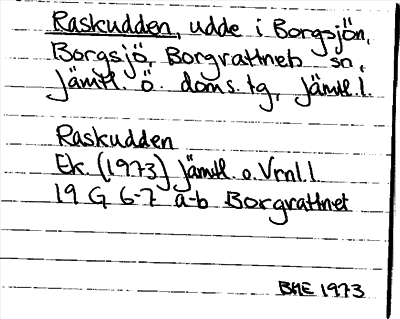 Raskudden, udde i Borgsjön,
Borgsjö, Borgvattneb sn,
Jämtl. ö. doms.tg, Jämtl.l.
Raskudden
Ek. (1973) Jämtl. o. Vrnl.l.
19 G 6-7 a-b Borgvattnet
BHE 1973